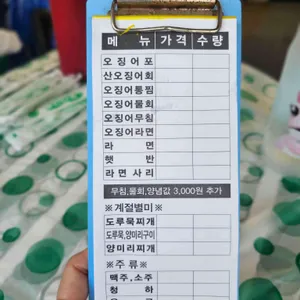 메 뉴 가격 수량
오징어포
산오징어회
오징어통찜
오징어물회
오징어무침
오징어라면
라 면
햇 반
라면 사리
무침,물회,양념값 3,000원 추가
※계절별미※
도루묵찌개
도루묵,양미리구이
양미리찌개
※주 류※
맥주,소주
청 하